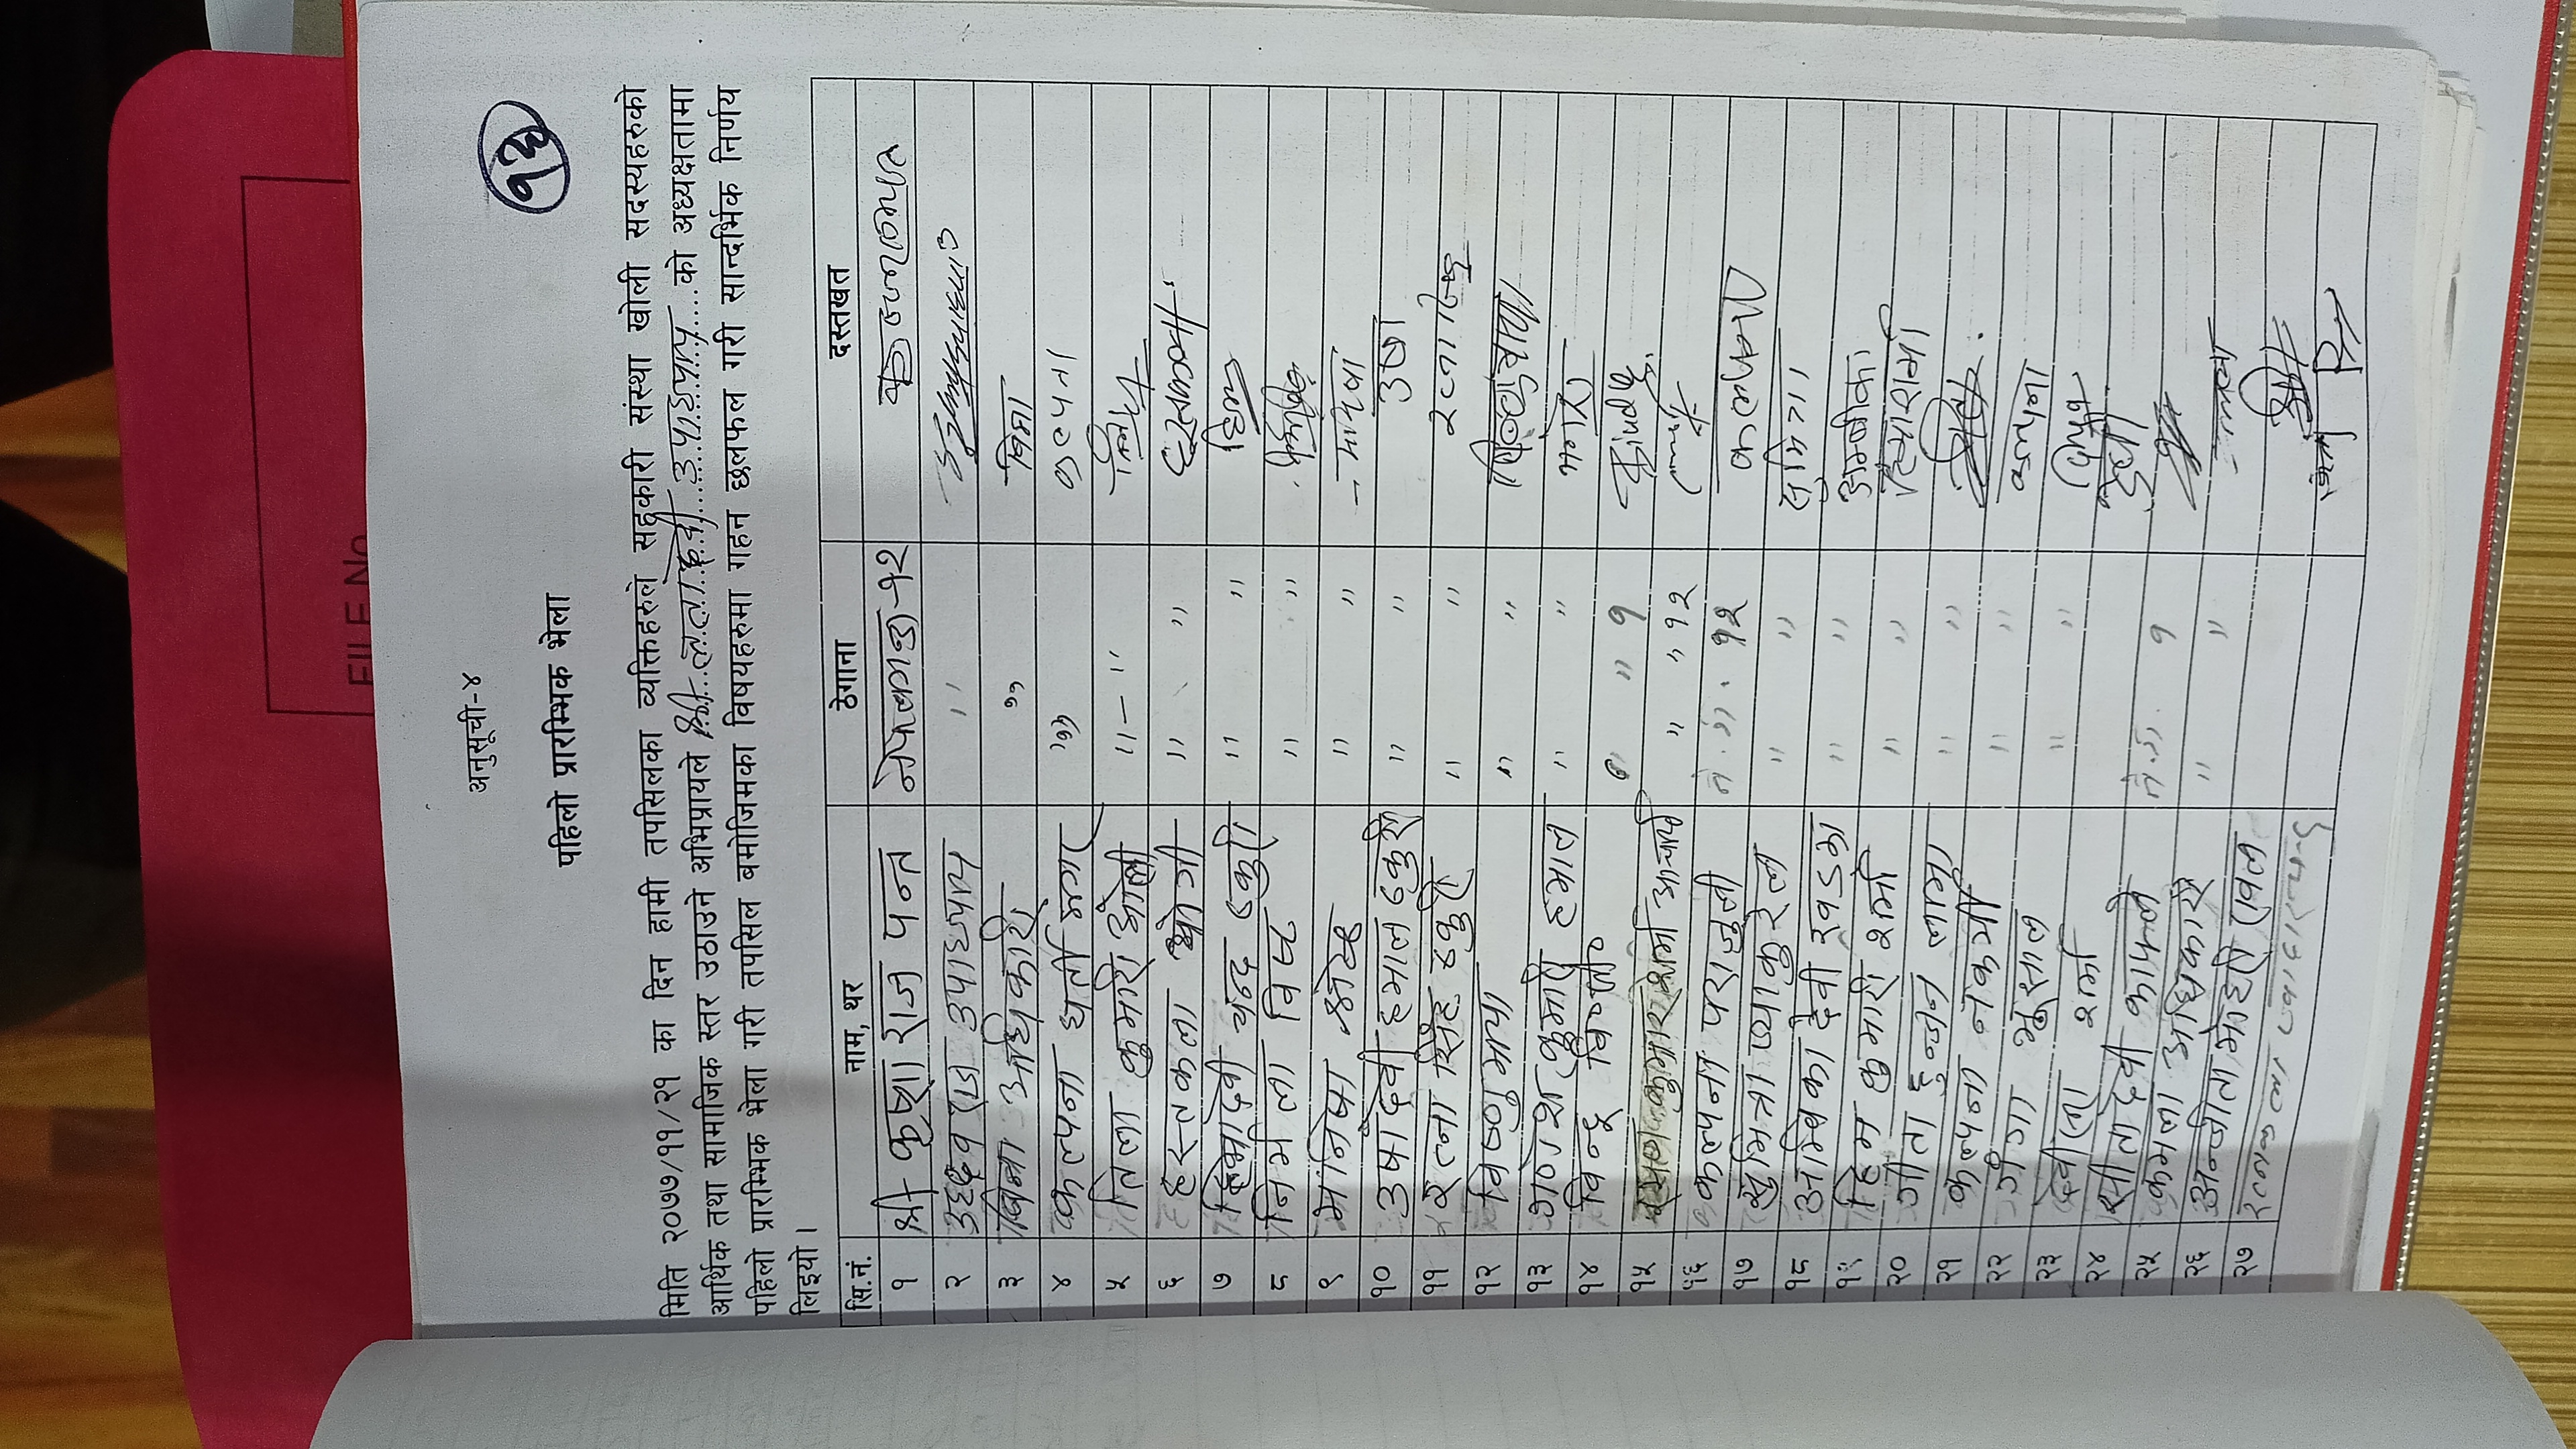 FILE No
अनुसूची-४
१३
पहिलो प्रारम्भिक भेला
मिति २०७७/११/२१ का दिन हामी तपसिलका व्यक्तिहरुले सहकारी संस्था खोली सदस्यहरुको
आर्थिक तथा सामाजिक स्तर उठाउने अभिप्रायले श्री लतादेवी उपाध्याय को अध्यक्षतामा
पहिलो प्रारम्भिक भेला गरी तपसिल बमोजिमका विषयहरुमा गहन छलफल गरी सान्दर्भिक निर्णय
लिइयो ।
सि.नं. नाम, थर ठेगाना दस्तखत
१ श्री कृष्ण राज पन्त -१२
२ उद्धवराज उपाध्याय " 
३ बिना अधिकारी " बिना
४ कल्पना घर्ती मगर " कल्पना
५ तिला कुमारी ओली " - "
६ हस्तकला योगी " " हस्तकला
७ हिमादेवी चन्द ठकुरी " " हिमा
८ निर्मला विष्ट " "
९ मनिषा श्रेष्ठ " " मनिषा
१० उषादेवी हमाल ठकुरी " " उषा
११ रत्ना सिंह ठकुरी " "
१२ विष्णुमाया " "
१३ गणेश कुमारी हमाल " "
१४ विन्दू वि०सी० " " १ Bindu
१५ कुमार शर्मा आचार्य " " १२
१६ कल्पना पराजुली ने.गं. १२ कल्पना
१७ सुमित्रा प्याकुरेल " " सुमित्रा
१८ अम्बिका देवी खड्का " " अम्बीका
१९ हिम कुमारी शर्मा " " हिमा शर्मा
२० गीता दुन्जन लामा " " गिता
२१ कल्पना नकर्मी " " कल्पना
२२ गंगा भुसाल " "
२३ शर्मा देवी
२४ सीतादेवी काफ्ले ने.गं. १
२५ कमला अधिकारी " "
२६ अन्जीता रावल
२७ रत्नकला